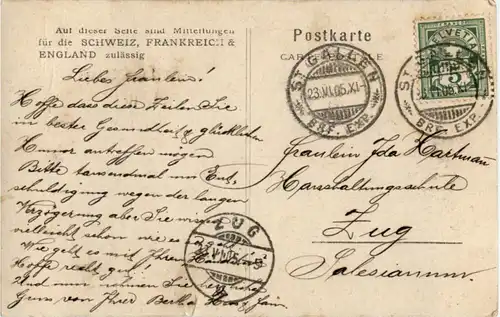 Auf dieser Seite sind Mitteilungen
für die SCHWEIZ, FRANKREICH &
ENGLAND zulässig
Postkarte
HELVETIA
5
ST. GALLEN
23.VI.05.XI-
BRF. EXP.
ST. GALLEN
BRF. EXP.
Liebes Fräulein!
Hoffe dass diese Zeilen Sie
in bester Gesundheit & glücklichem
Humor antreffen mögen
Bitte tausendmal um Ent-
schuldigung wegen der langen
Verzögerung aber Sie wissen
vielleicht schon wie es
Wie geht es mit Ihrem
Hoffe recht gut!
Und nun nehmen Sie
Gruss von Ihrer Bertha
ZUG
Fräulein Ida Hartmann
Haushaltungsschule
Zug
Salesianum.